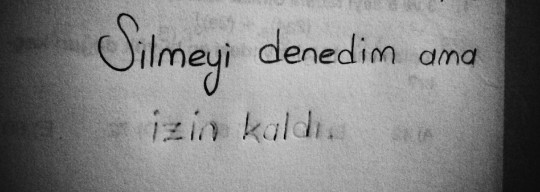 Silmeyi denedim ama
izin kaldı.